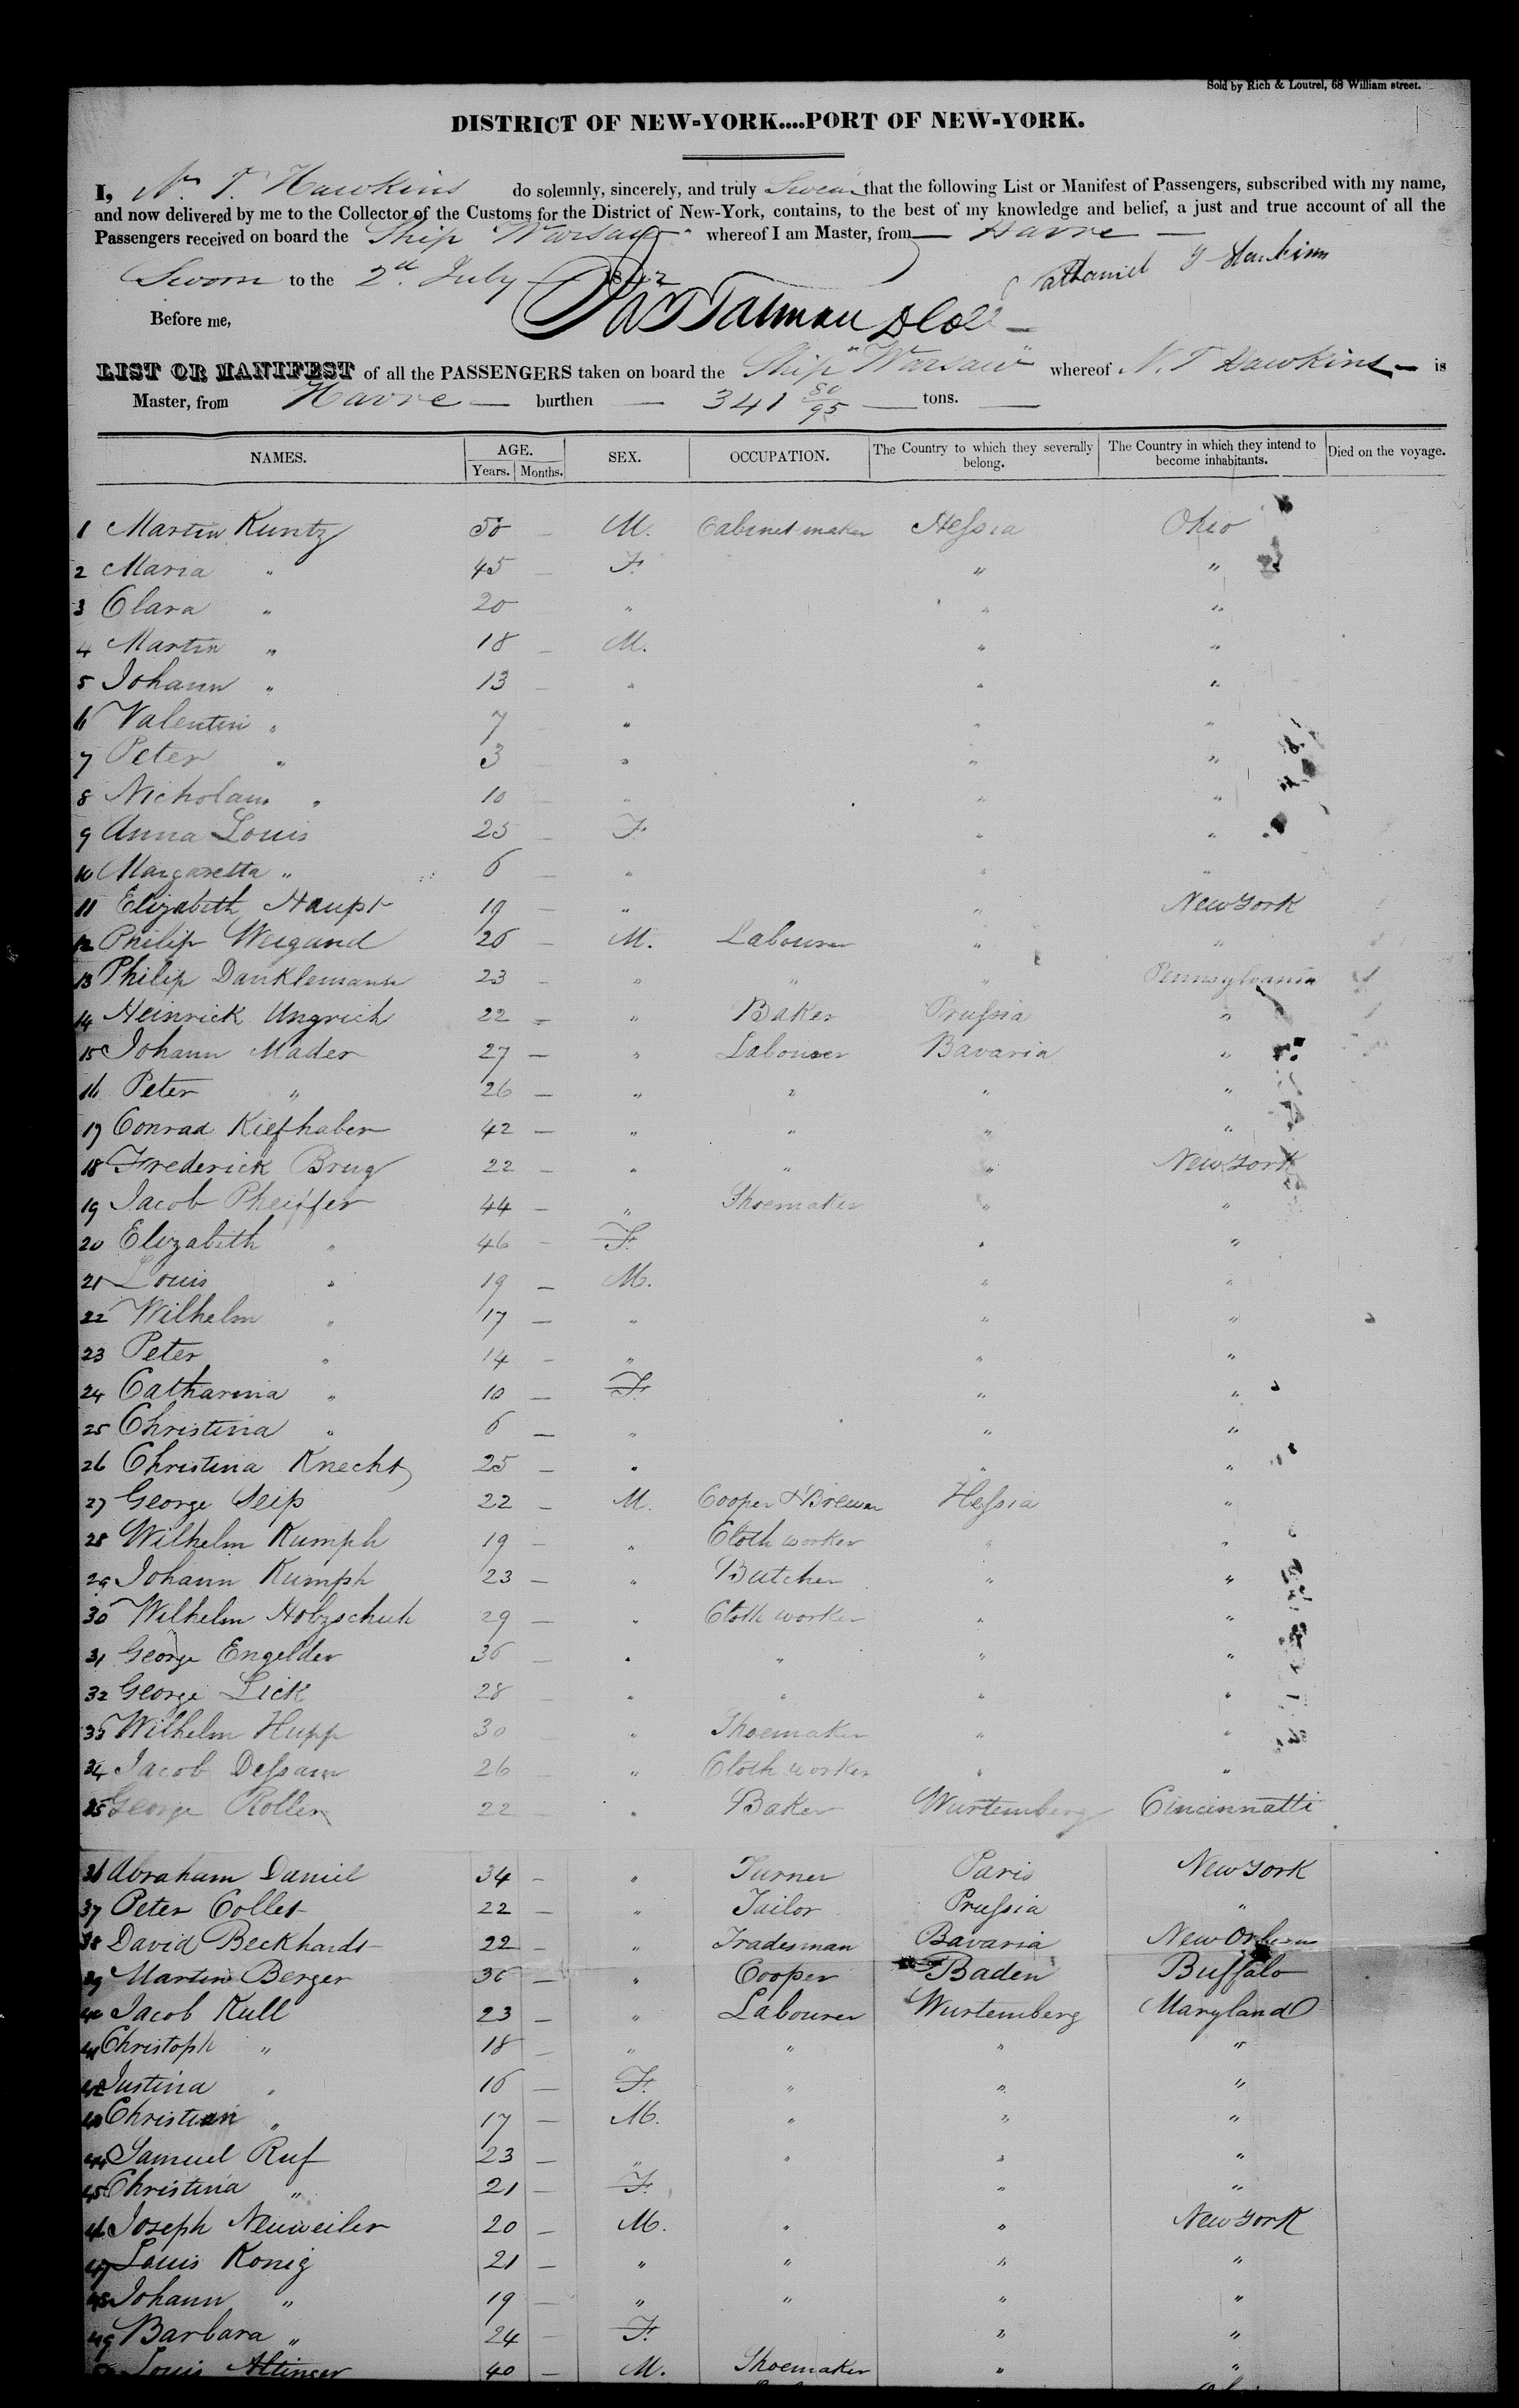 Sold by Rich & Loutrel, 68 William street.
DISTRICT OF NEW-YORK....PORT OF NEW-YORK.
I, N. T. Hawkins do solemnly, sincerely, and truly Swear that the following List or Manifest of Passengers, subscribed with my name,
and now delivered by me to the Collector of the Customs for the District of New-York, contains, to the best of my knowledge and belief, a just and true account of all the
Passengers received on board the Ship "Warsaw" whereof I am Master, from Havre
Nathaniel T Hawkins
Sworn to the 2d. July 1842
Before me,
LIST OR MANIFEST of all the PASSENGERS taken on board the Ship "Warsaw" whereof N. T Hawkins is
Master, from Havre burthen 341 80/95 tons.
NAMES. AGE. Years. Months. SEX. OCCUPATION. The Country to which they severally belong. The Country in which they intend to become inhabitants. Died on the voyage.
1 Martin Kuntz 50 — M. Cabinet maker Hessia Ohio
2 Maria " 45 — F. " "
3 Clara " 20 " " "
4 Martin " 18 — M. " "
5 Johann " 13 — " " "
6 Valentin " 7 — " " "
7 Peter " 3 — " " "
8 Nicholaus " 10 — " " "
9 Anna Louis 25 — F. " "
10 Margaretta " 6 — " " "
11 Elizabeth Haupt 19 — " " New York
12 Philip Weigand 26 — M. Labourer " "
13 Philip Danklemann 23 — " " " Pennsylvania
14 Heinrick Ungrich 22 — " Baker Prussia "
15 Johann Mader 27 — " Labourer Bavaria "
16 Peter " 26 — " " " "
17 Conrad Kiefhaber 42 — " " " "
18 Frederick Brug 22 — " " " New York
19 Jacob Pheiffer 44 — " Shoemaker " "
20 Elizabeth " 46 — F. " "
21 Louis " 19 — M. " "
22 Wilhelm " 17 — " " "
23 Peter " 14 — " " "
24 Catharina " 10 — F. " "
25 Christina " 6 — " " "
26 Christina Knecht 25 — " " "
27 George Seip 22 — M. Cooper & Brewer Hessia "
28 Wilhelm Kumph 19 — " Cloth worker " "
29 Johann Kumph 23 — " Butcher " "
30 Wilhelm Holzschuh 29 — " Cloth worker " "
31 George Engelder 36 — " " " "
32 George Lick 28 — " " " "
33 Wilhelm Hupp 30 — " Shoemaker " "
34 Jacob Dessaur 26 — " Cloth worker " "
35 George Roller 22 — " Baker Wurtemberg Cincinnatti
36 Abraham Daniel 34 — " Turner Paris New York
37 Peter Collet 22 — " Tailor Prussia "
38 David Beckhardt 22 — " Tradesman Bavaria New Orleans
39 Martin Berger 36 — " Cooper Baden Buffalo
40 Jacob Kull 23 — " Labourer Wurtemberg Maryland
41 Christoph " 18 — " " " "
42 Justina " 16 — F. " " "
43 Christian " 17 — M. " " "
44 Samuel Ruf 23 — " " " "
45 Christina " 21 — F. " "
46 Joseph Neuweiler 20 — M. " " New York
47 Louis Konig 21 — " " " "
48 Johann " 19 — " " " "
49 Barbara " 24 — F. " "
50 Louis Altinger 40 — M. Shoemaker " "